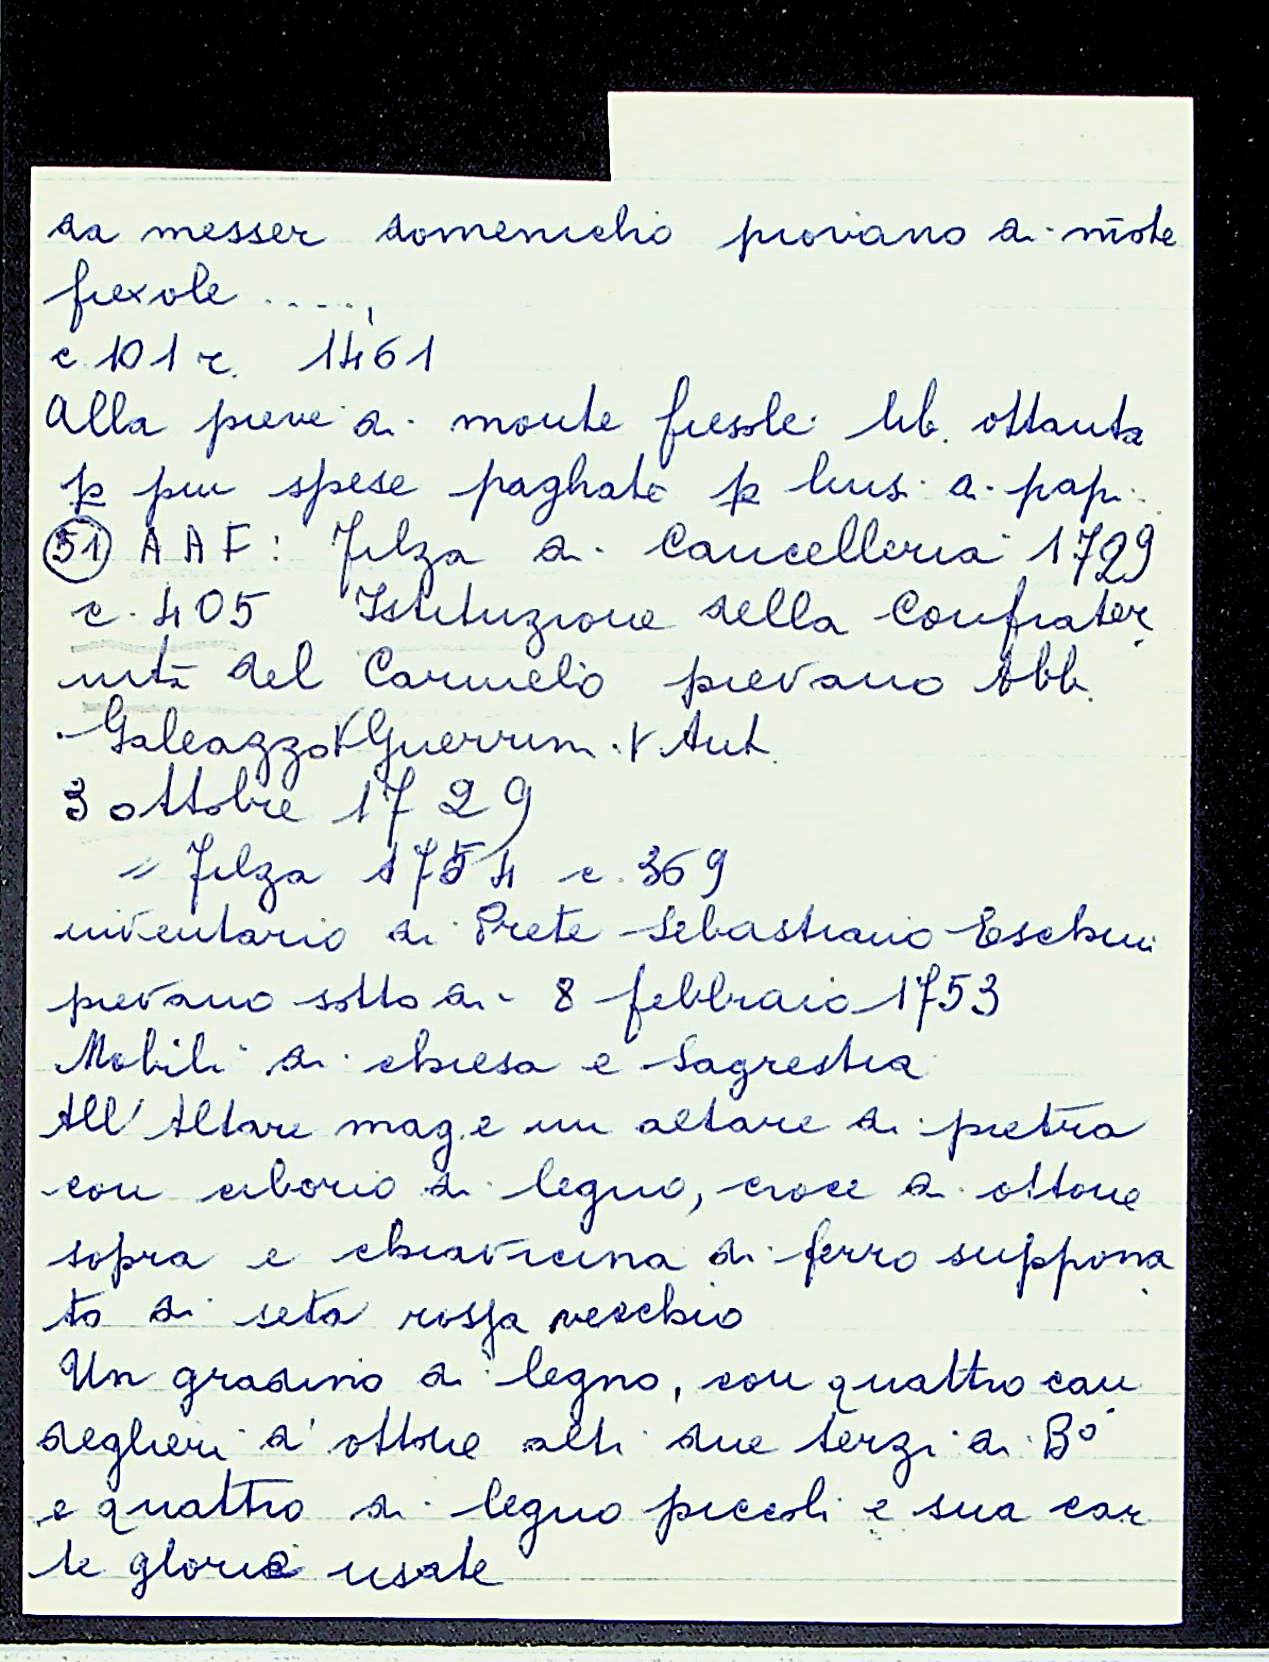 da messer domenicho piovano di mōte
fiexole .....,
c. 101 r. 1461
Alla pieve di monte fiesole lib. ottanta
p più spese paghate p lui a papi
51 AAF: Filza di Cancelleria 1729
c. 405 Istituzione della Confrater
nità del Carmelo pievano Abb.
Galeazzo Guerrini Ant.
3 ottobre 1729
" Filza 1754 c. 369
inventario di Prete Sebastiano Eschini
pievano sotto di 8 febbraio 1753
Mobili di chiesa e Sagrestia
All'Altare mag.e un altare di pietra
con ciborio di legno, croce di ottone
sopra e chiavicina di ferro suppona
to di seta rossa vecchio
Un gradino di legno, con quattro can
deglieri d'ottone alti due terzi di B°
e quattro di legno piccoli e sua car
te glorie usate